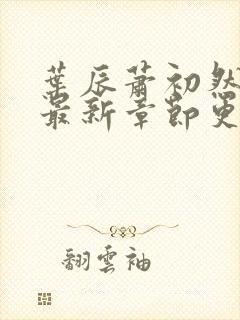 葉辰蕭初然
最新章節更
翻雲袖